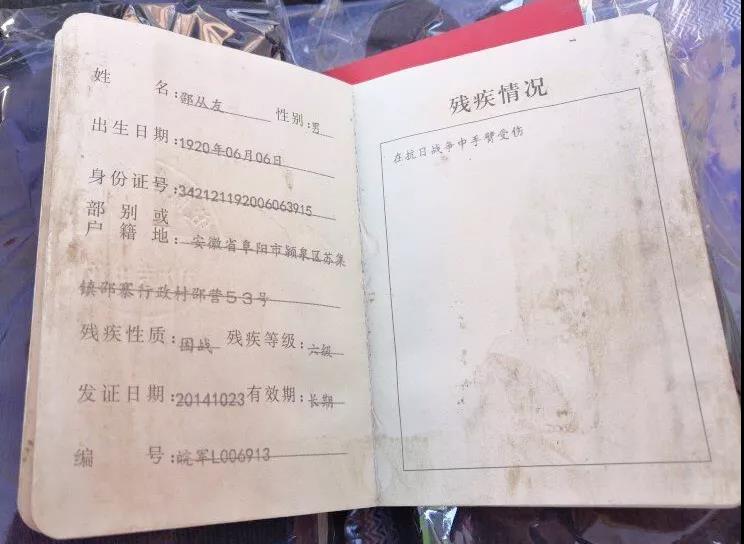 姓名:邵丛友 性别:男
出生日期:1920年06月06日
身份证号:342121192006063915
部别或
户籍地:安徽省阜阳市颍泉区苏集
镇邵寨行政村邵营53号
残疾性质:因战 残疾等级:六级
发证日期:20141023 有效期:长期
编号:皖军L006913
残疾情况
在抗日战争中手臂受伤